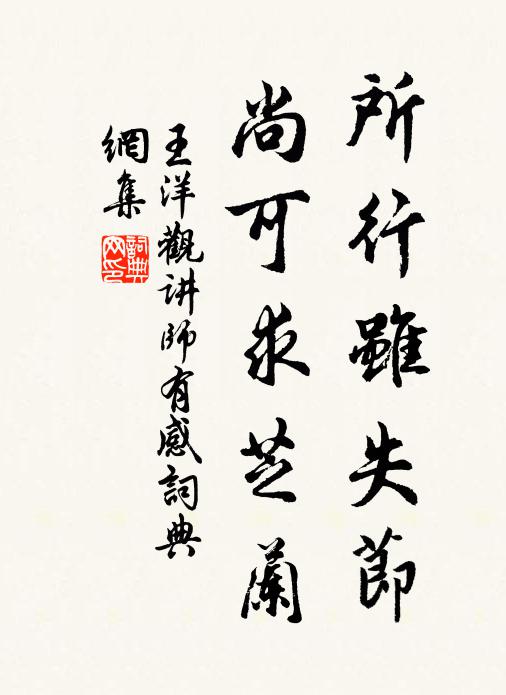 所行雖失節
尚可求芝蘭
王洋觀讲師有感詞典
網集
詞典
网印